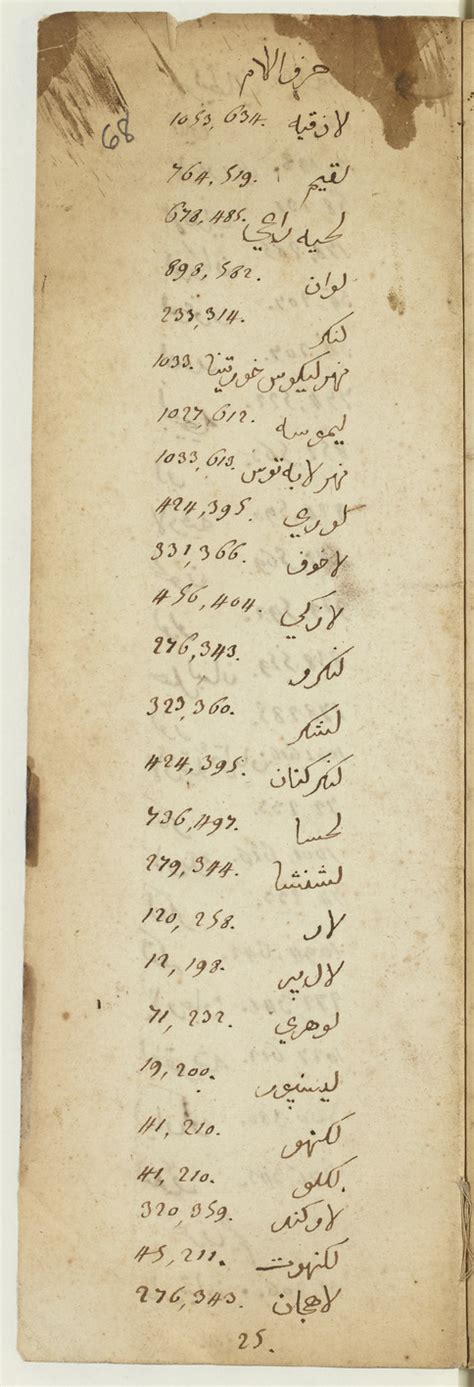 حرف اللام
68
لاذقيه 1053, 634.
لقيم 764, 519.
لحيه 678, 485.
لوان 898, 582.
لنكر 233, 314.
نهر ليكوس 1033.
ليموسه 1027, 612.
نهر لابه توس 1033, 613.
424, 395.
لاخوف 331, 366.
لازكي 456, 404.
لنكرو 276, 343.
لشكر 323, 360.
لنكركنان 424, 395.
لحسا 736, 497.
لشنشا 279, 344.
لار 120, 258.
12, 198.
لوهري 71, 232.
19, 200.
لكنهو 41, 210.
لكلو 41, 210.
لاوكند 320, 359.
لكنهوت 45, 211.
لاهجان 276, 343.
25.